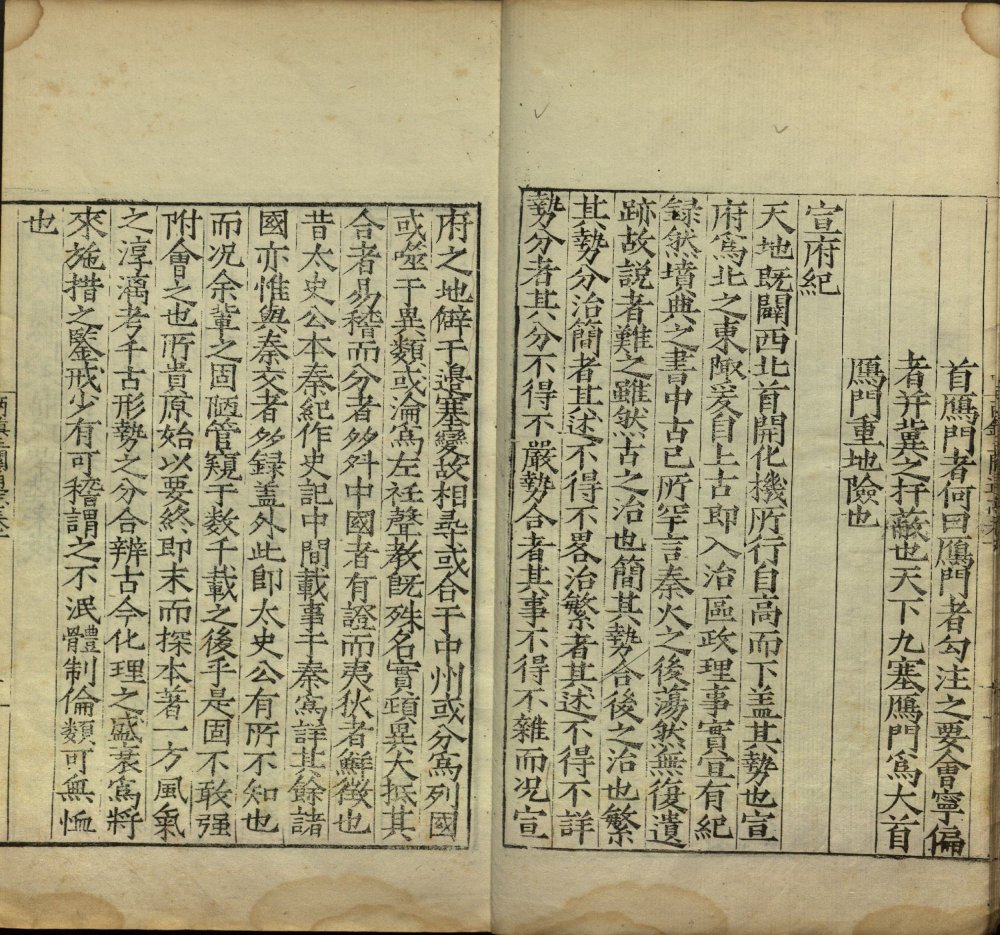 首鴈門者何曰鴈門者勾注之要會寧偏
者并冀之扞蔽也天下九塞鴈門爲大首
鴈門重地險也
宣府紀
天地旣闢西北首開化機所行自高而下盖其勢也宣
府爲北之東陬爰自上古即入治區政理事實宜有紀
録然墳典之書中古已所罕言秦火之後蕩然無復遺
跡故説者難之雖然古之治也簡其勢合後之治也繁
其勢分治簡者其述不得不畧治繁者其述不得不詳
勢分者其分不得不嚴勢合者其事不得不雜而况宣
府之地僻于邉塞變故相尋或合于中州或分爲列國
或噬于異類或淪爲左衽聲教旣殊名實頙異大抵其
合者易稽而分者多舛中國者有證而夷狄者鮮徵也
昔太史公本秦紀作史記中間載事于秦爲詳其餘諸
國亦惟與秦交者多録盖外此即太史公有所不知也
而况余輩之固陋管窺于数千載之後乎是固不敢强
附會之也所貴原始以要終即末而探本著一方風氣
之淳漓考千古形勢之分合辨古今化理之盛衰爲將
來施措之鑒戒少有可稽謂之不泯體制倫類可無恤
也